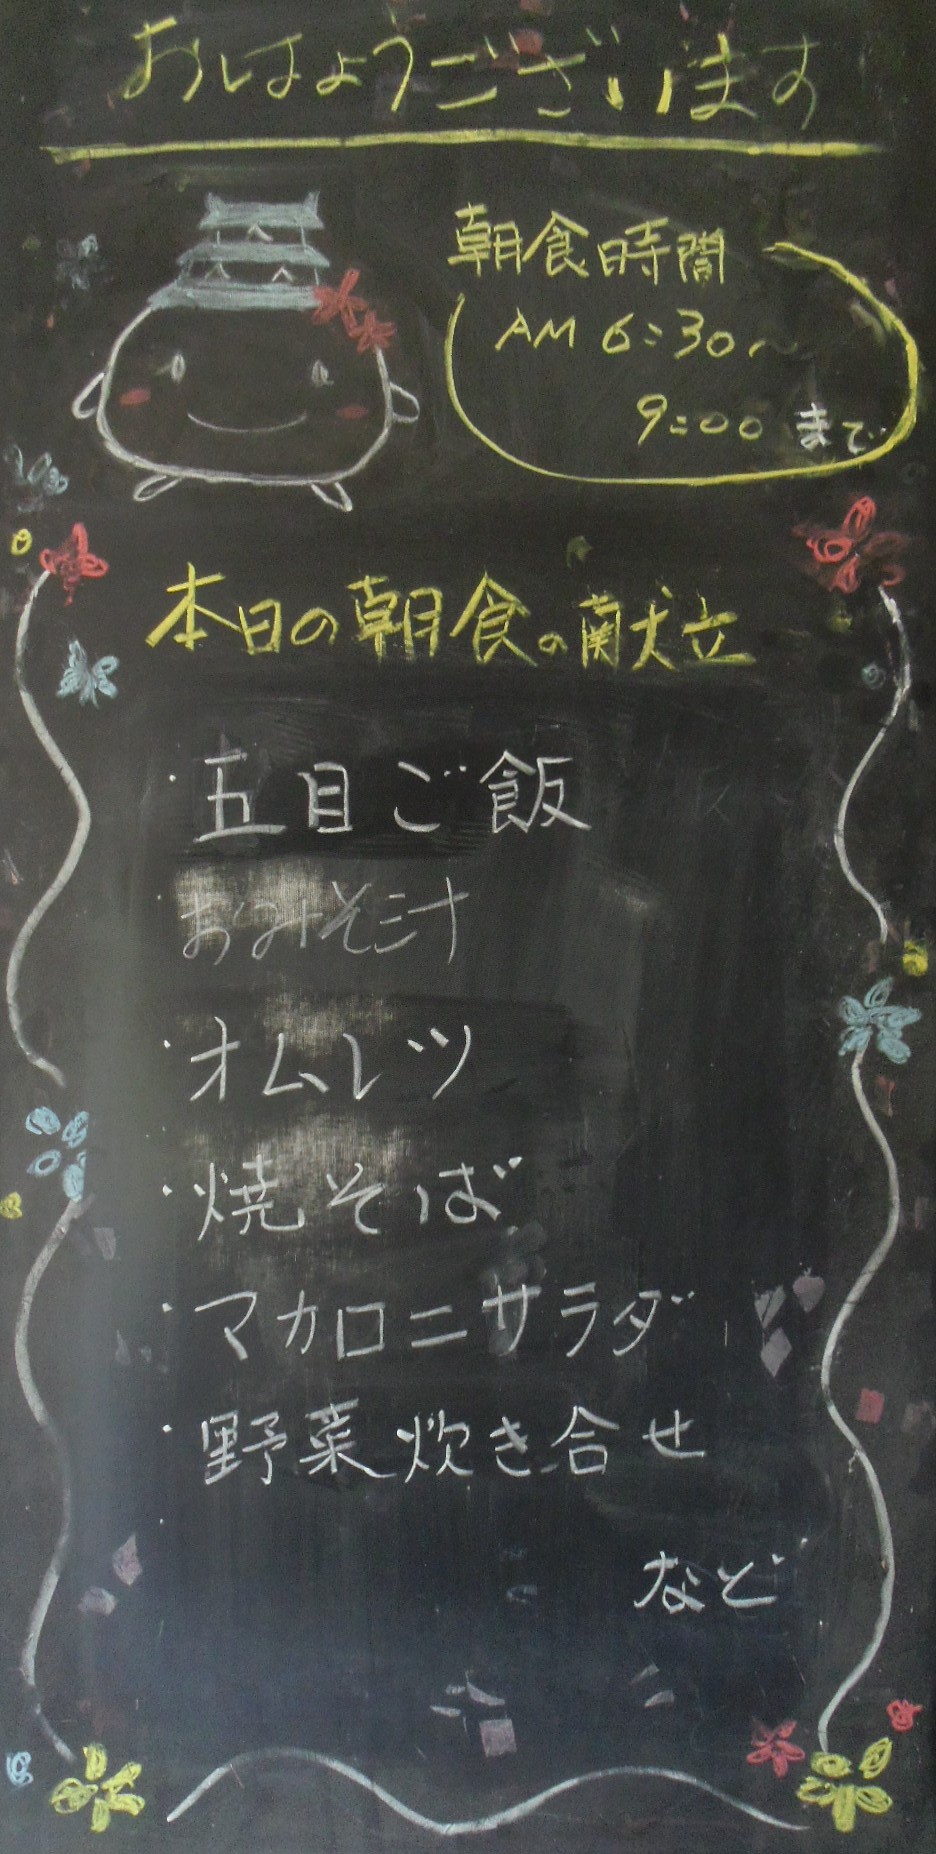 おはようございます
朝食時間
AM 6:30〜
9:00 まで
本日の朝食の献立
・五目ご飯
おみそ汁
・オムレツ
・焼そば
・マカロニサラダ
・野菜炊き合せ
・
など